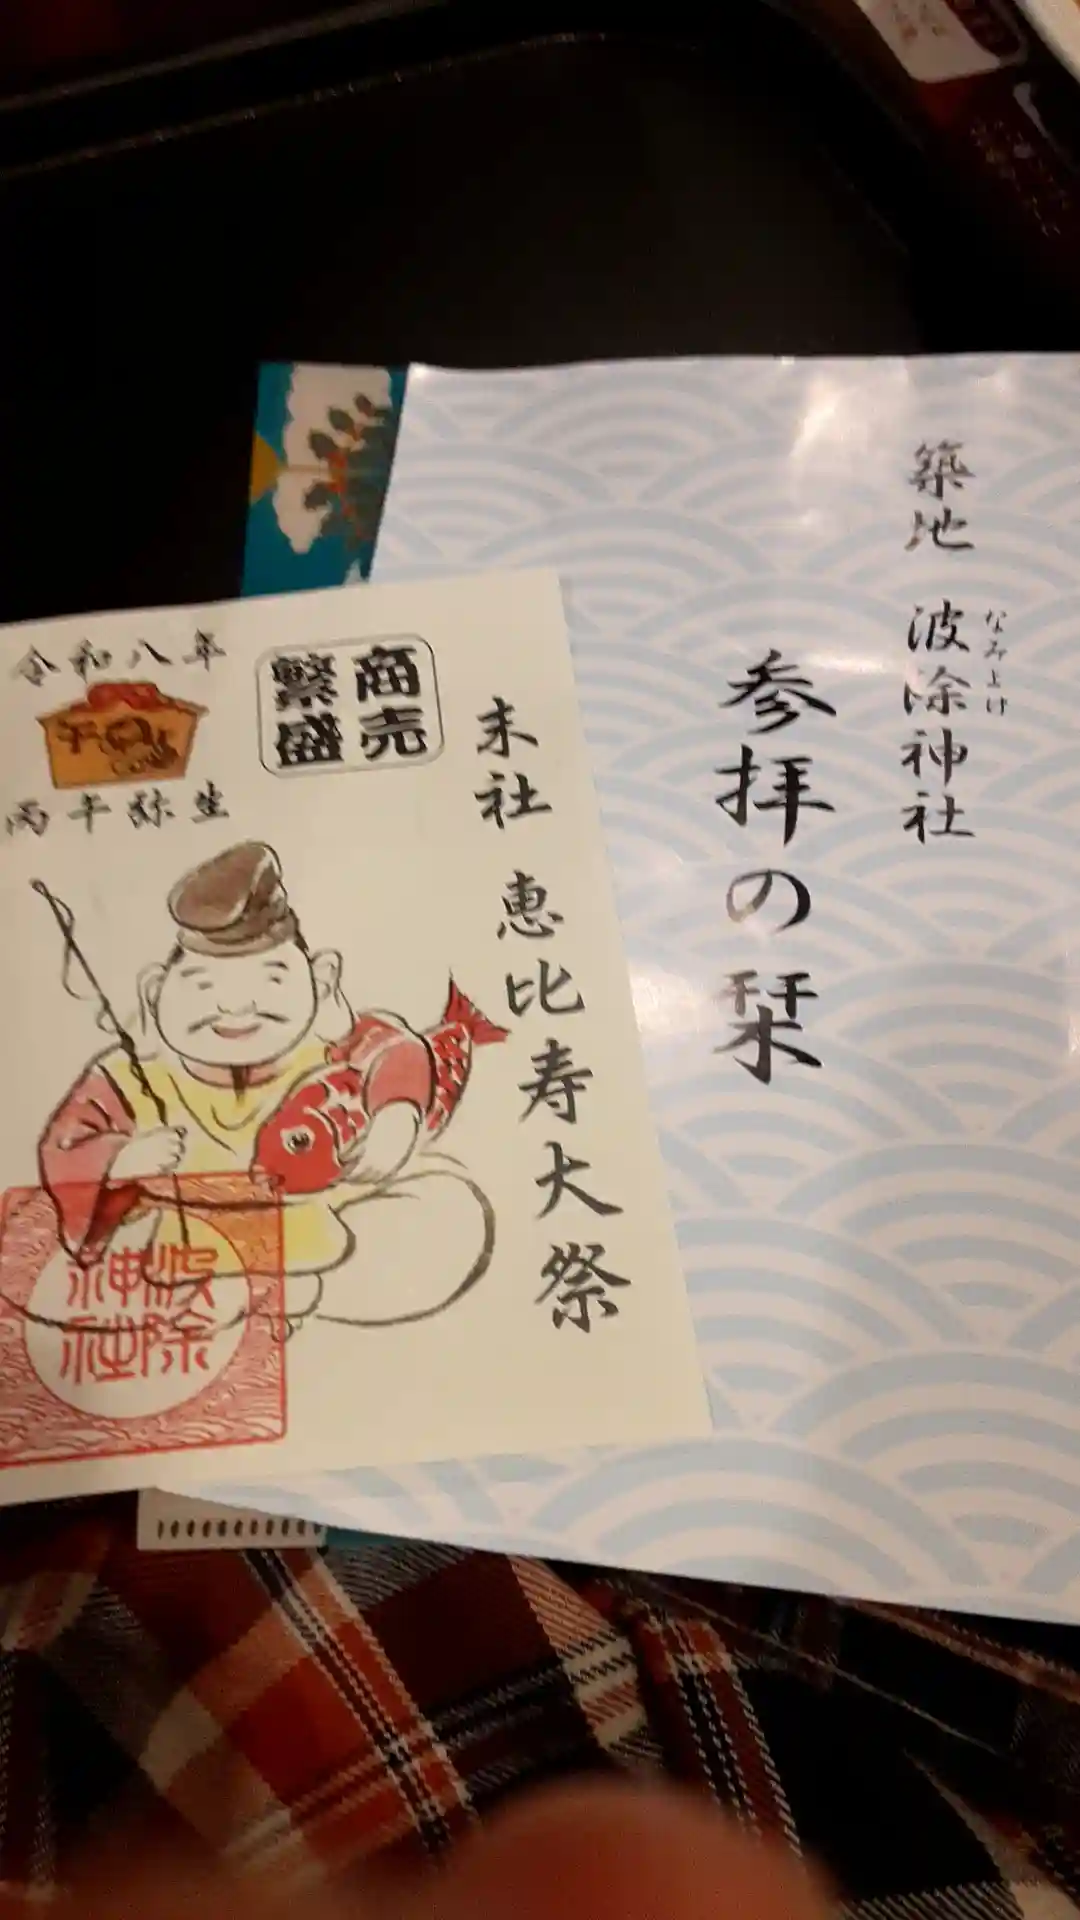 築地 波除神社
なみよけ
参拝の栞
末社 恵比寿大祭
商売
繁盛
令和八年
丙午弥生
波除
神社